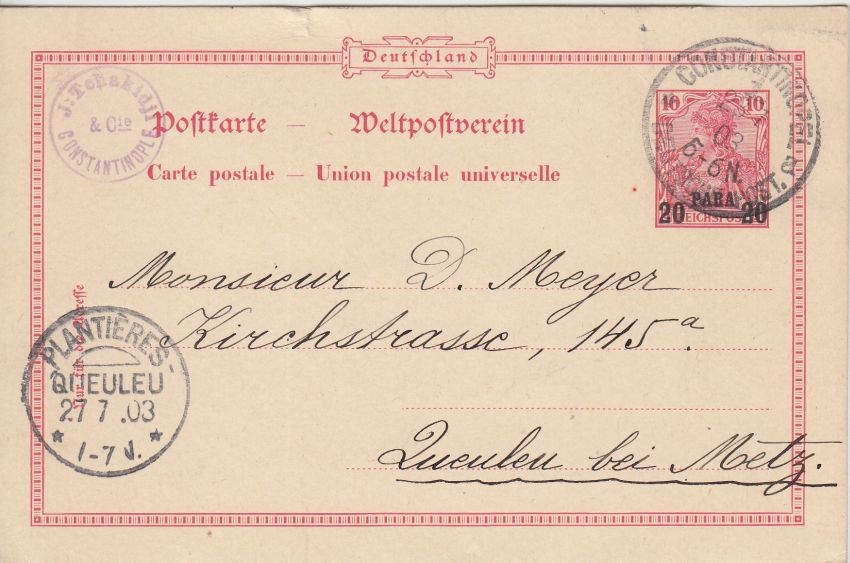 Deutschland
J. Tchakidji
& Cie
CONSTANTINOPLE
Postkarte — Weltpostverein
Carte postale — Union postale universelle
CONSTANTINOPEL
03
5-6N
POST.
10 10
PARA
20 20
REICHSPOST
Monsieur D. Meyer
Kirchstrasse, 145a.
Queuleu bei Metz.
Nur für die Adresse
PLANTIÈRES-
QUEULEU
27 7 .03
* 1-7 V. *